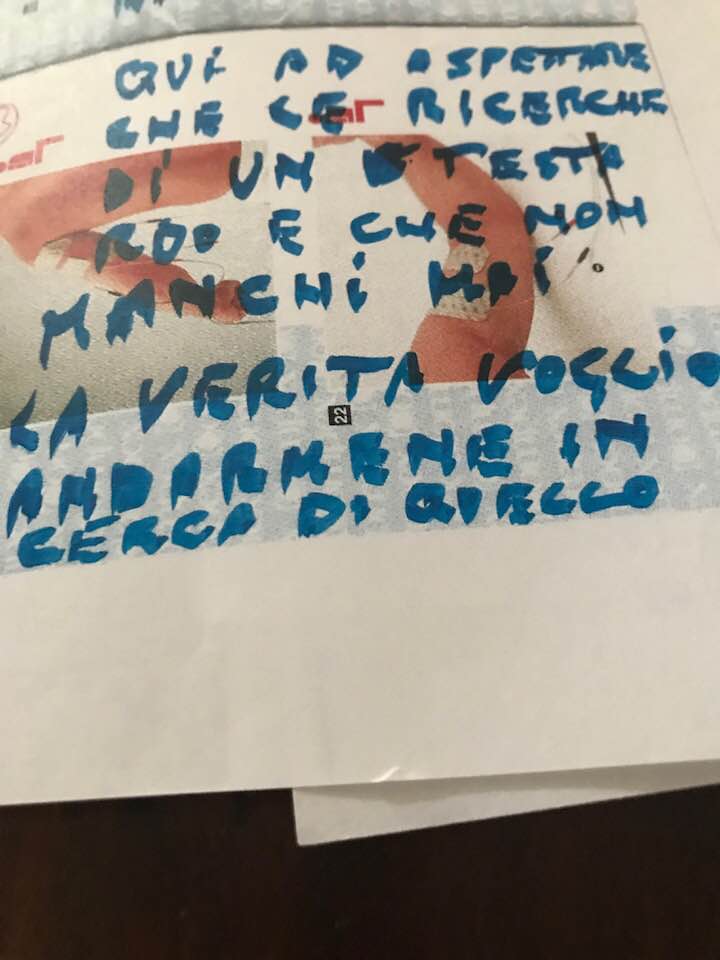 QUI AD ASPETTARE
CHE LE RICERCHE
DI UN TESTA
RDO E CHE NON
MANCHI MAI
LA VERITA VOGLIO
ANDARMENE IN
CERCA DI QUELLO
22